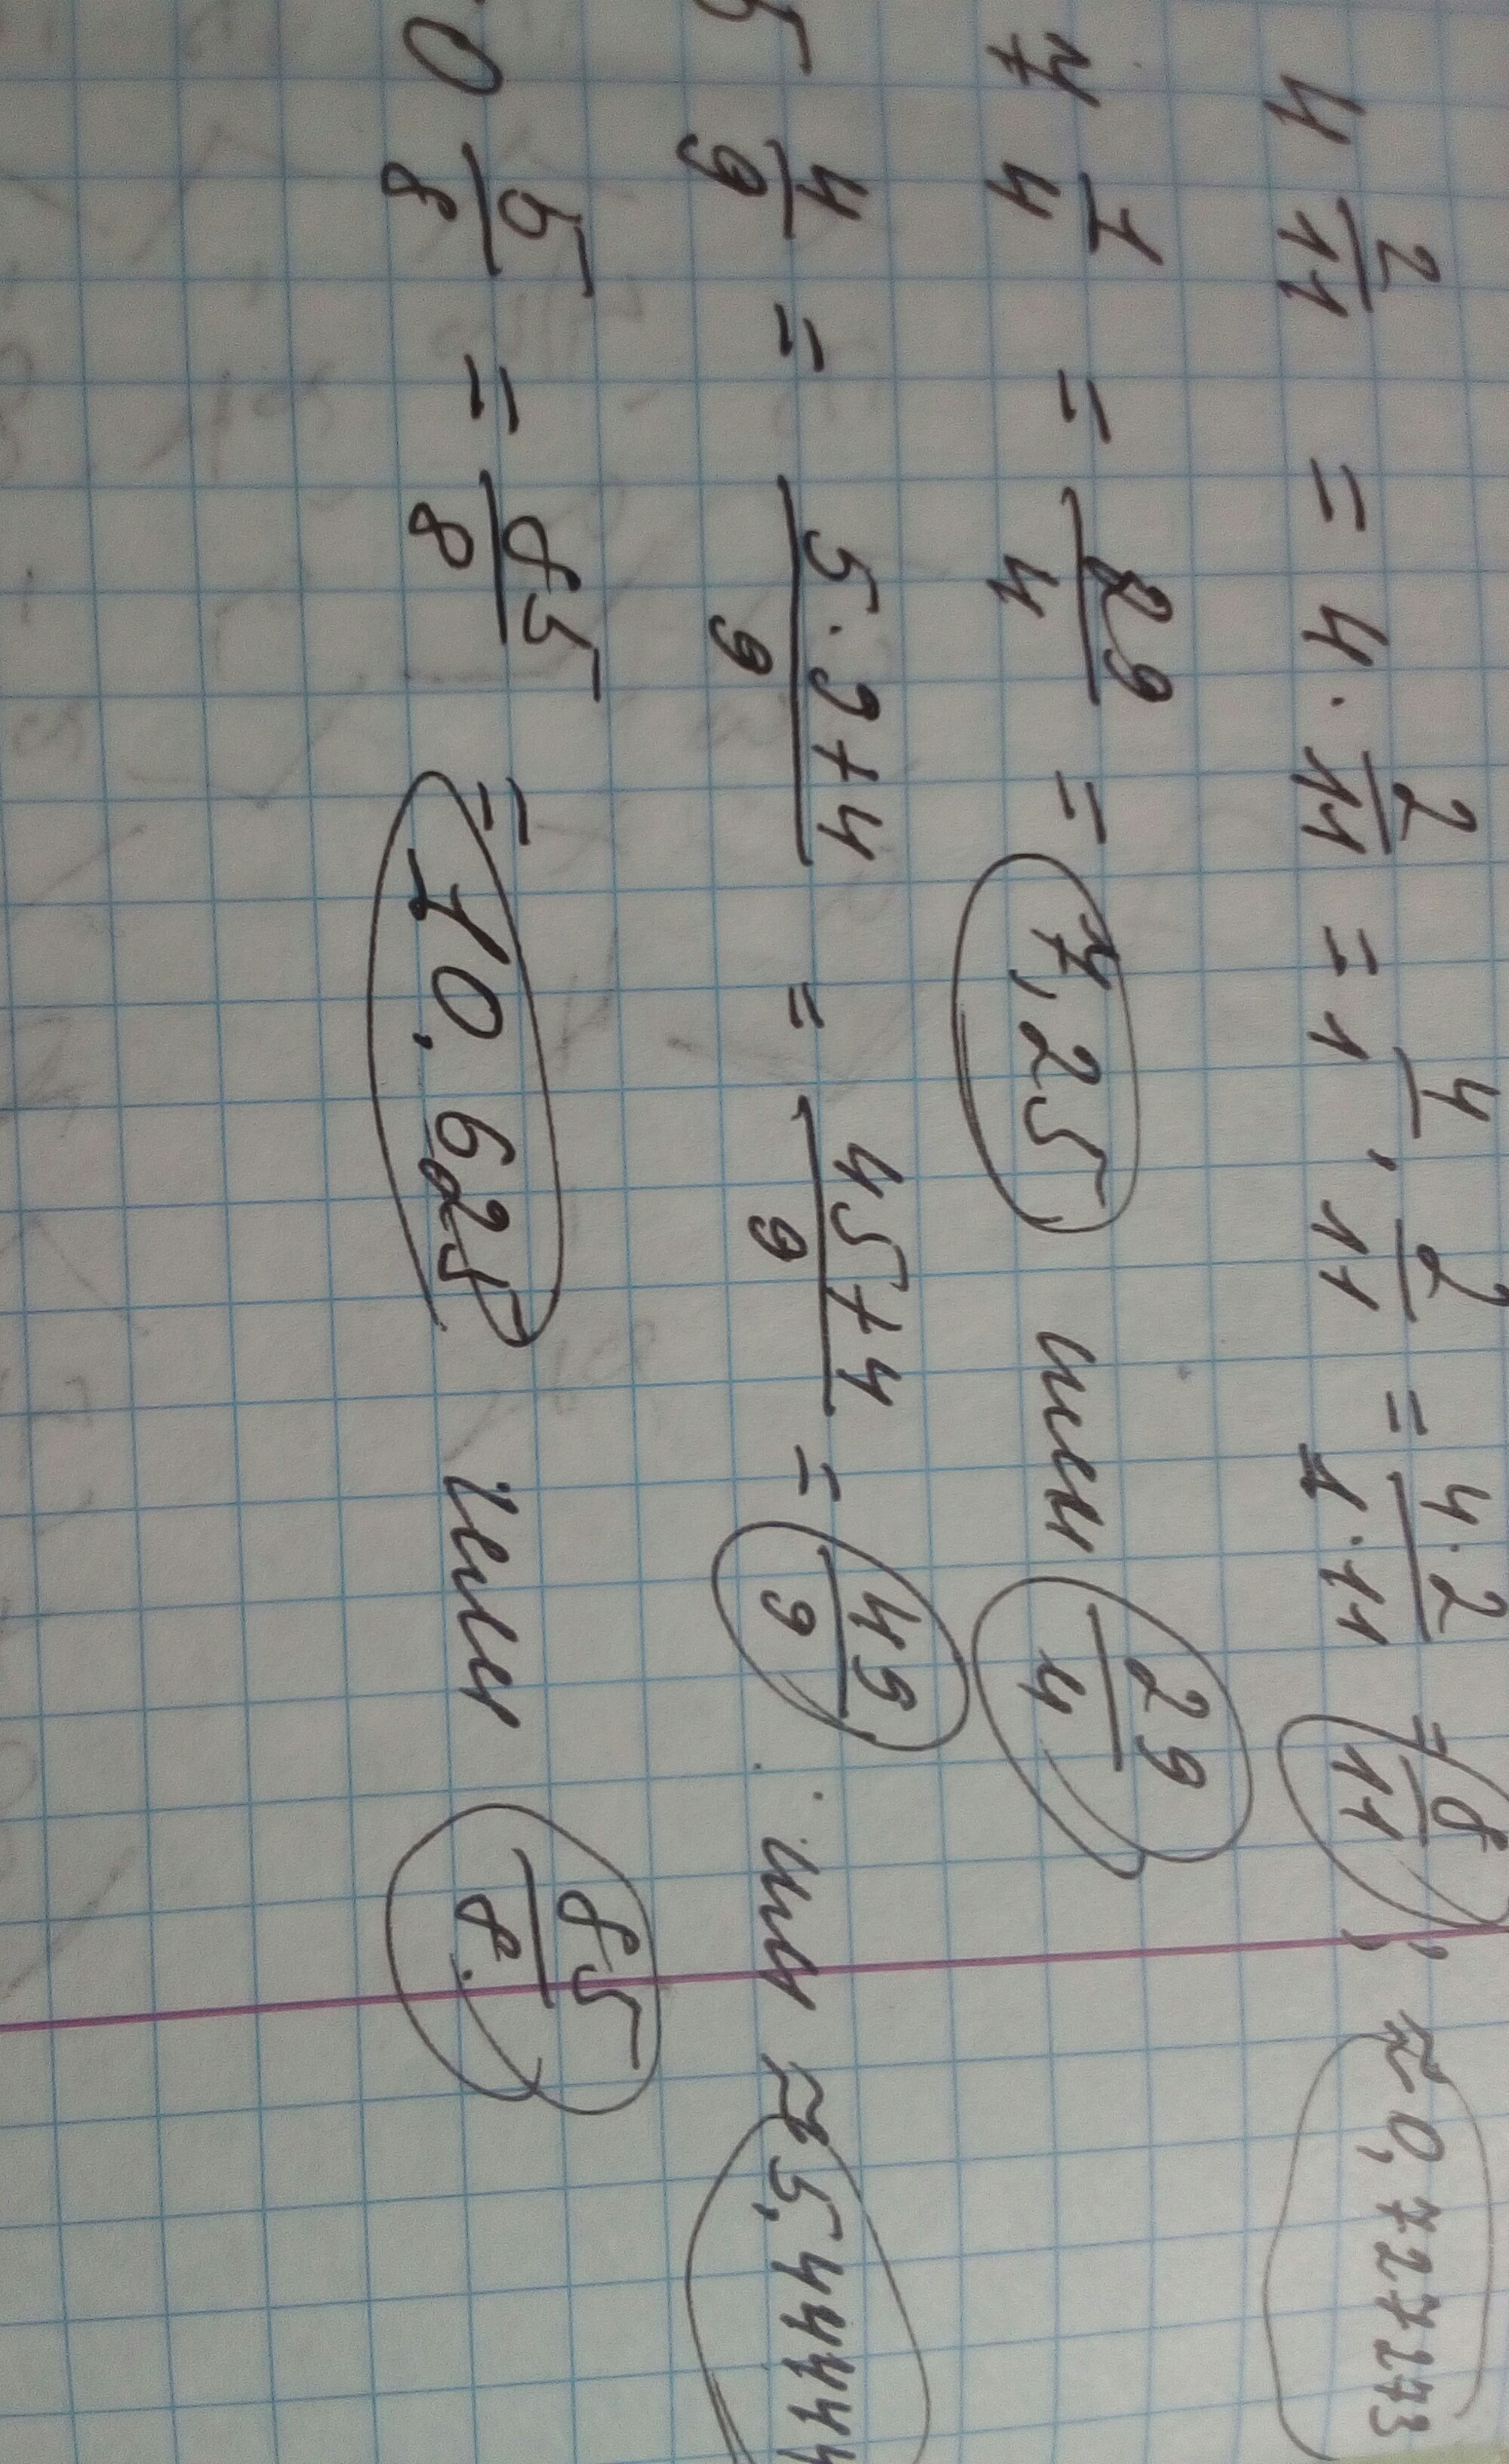 4 2/11 = 4 · 2/11 = 4/1 · 2/11 = 4·2/1·11 = 8/11 ; ≈ 0,727273
7 1/4 = 29/4 = 7,25 или 29/4
5 4/9 = 5·9+4/9 = 45+4/9 = 49/9 или ≈ 5,44444
0 5/8 = 85/8 = 10.625 или 85/8